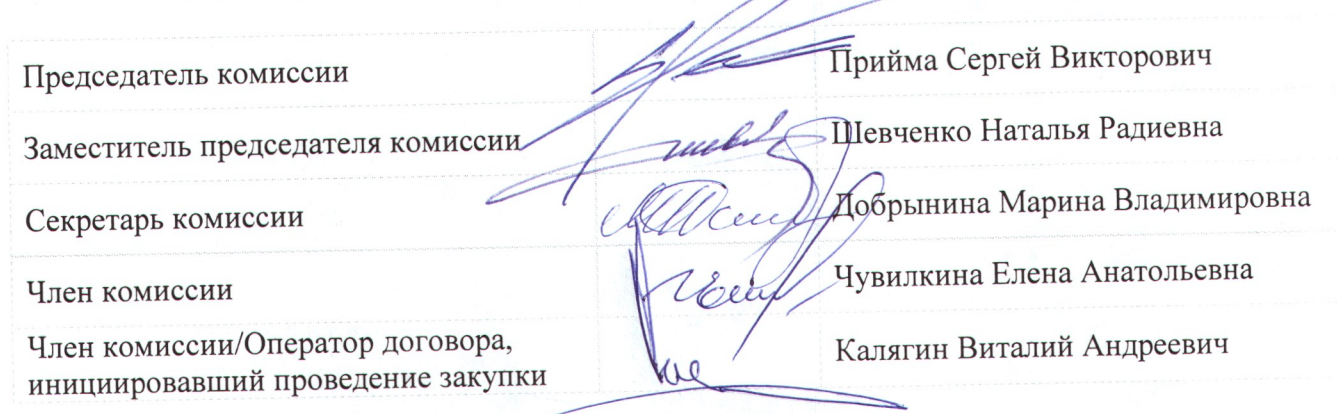 Председатель комиссии Прийма Сергей Викторович
Заместитель председателя комиссии Шевченко Наталья Радиевна
Секретарь комиссии Добрынина Марина Владимировна
Член комиссии Чувилкина Елена Анатольевна
Член комиссии/Оператор договора,
инициировавший проведение закупки Калягин Виталий Андреевич